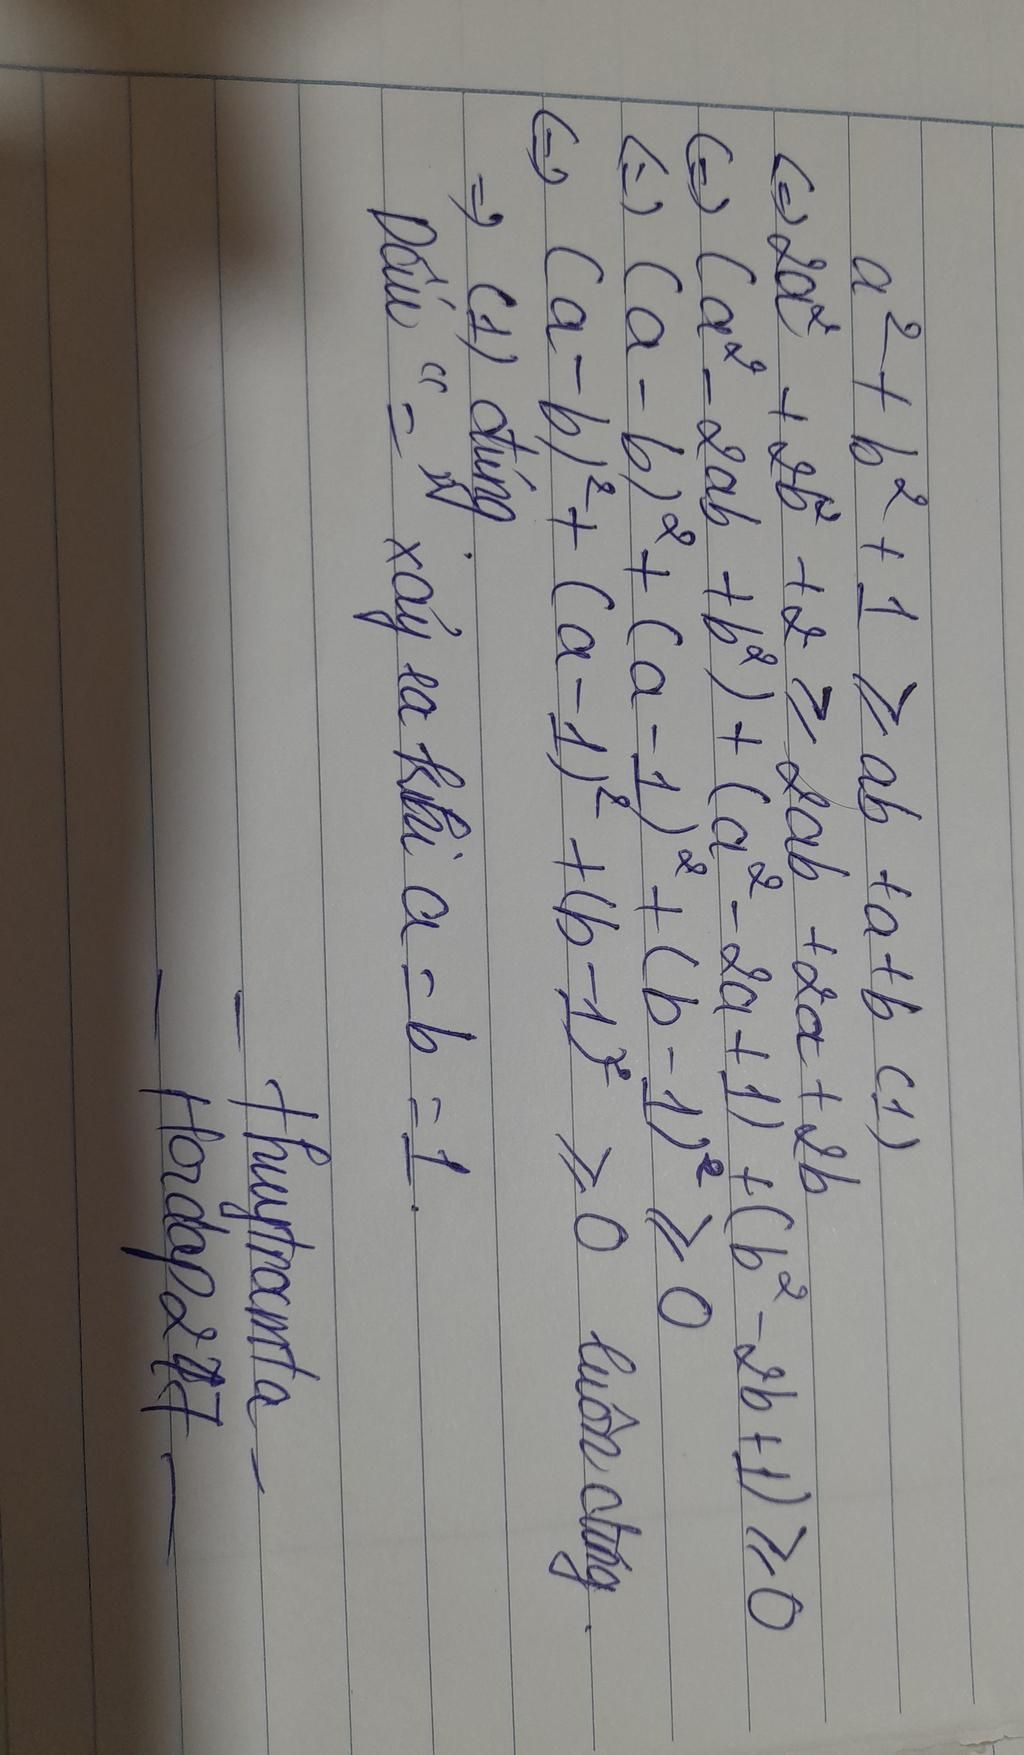 a² + b² + 1 ≥ ab + a + b (1)
(=) 2a² + 2b² + 2 ≥ 2ab + 2a + 2b
(=) (a² - 2ab + b²) + (a² - 2a + 1) + (b² - 2b + 1) ≥ 0
(=) (a - b)² + (a - 1)² + (b - 1)² ≥ 0
(=) (a - b)² + (a - 1)² + (b - 1)² ≥ 0 luôn đúng.
=) (1) đúng
Dấu "=" xảy ra khi a = b = 1.
- thuytramta -
- Hoidap247 -